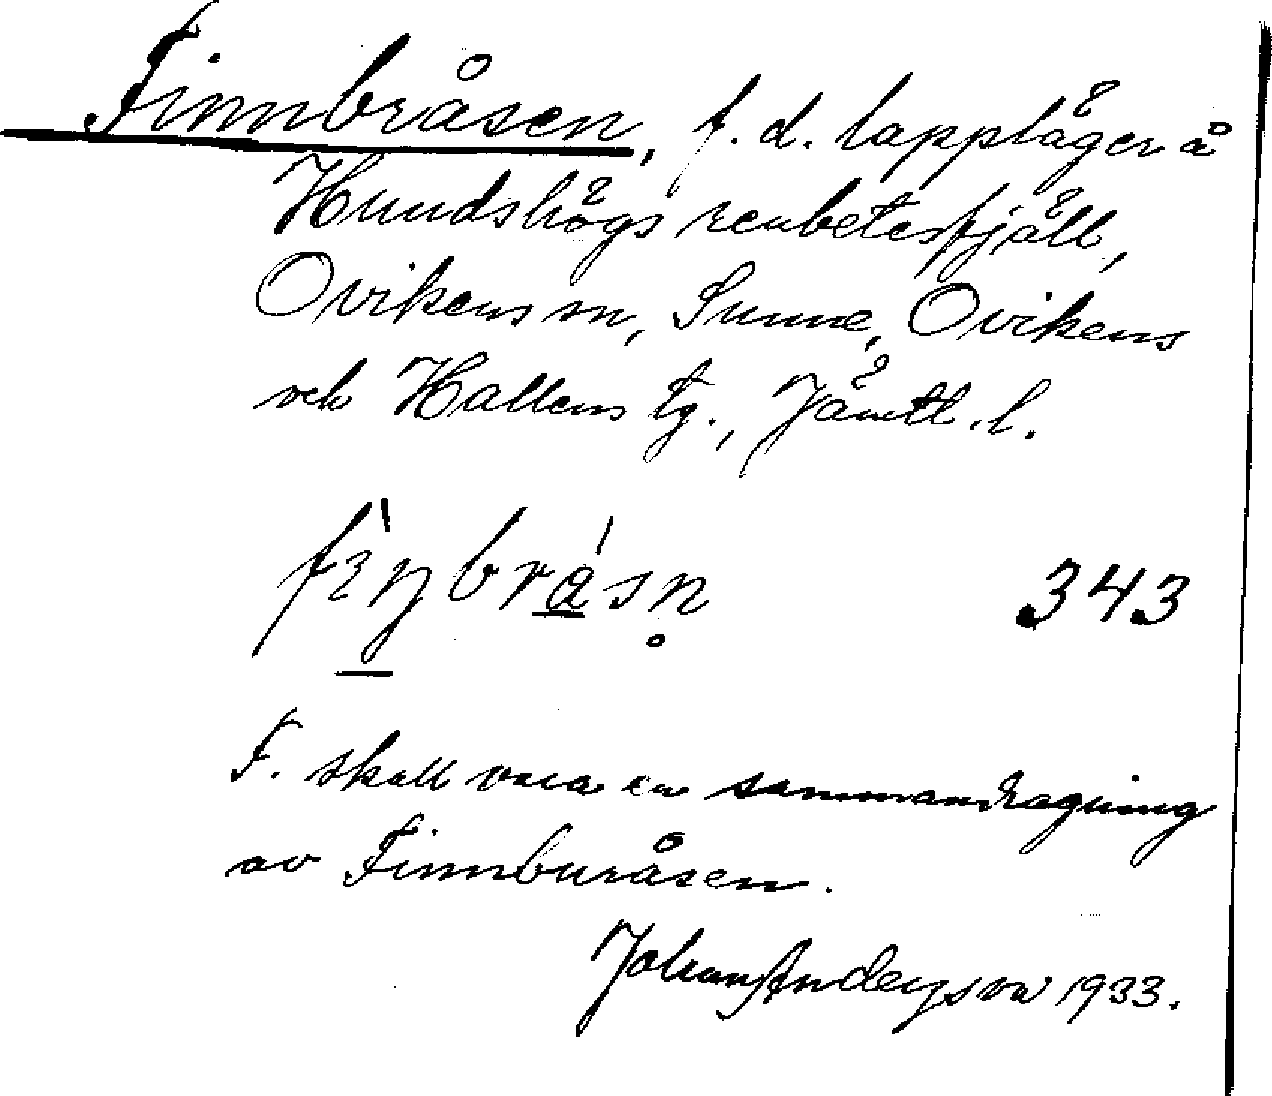 Finnbråsen, f. d. lappläger å
Hundshögs renbetesfjäll,
Ovikens sn, Sunne, Ovikens
och Hallens tg., Jämtl. l.
343
F. skall vara en sammandragning
av Finnburåsen.
Johan Anderson 1933.